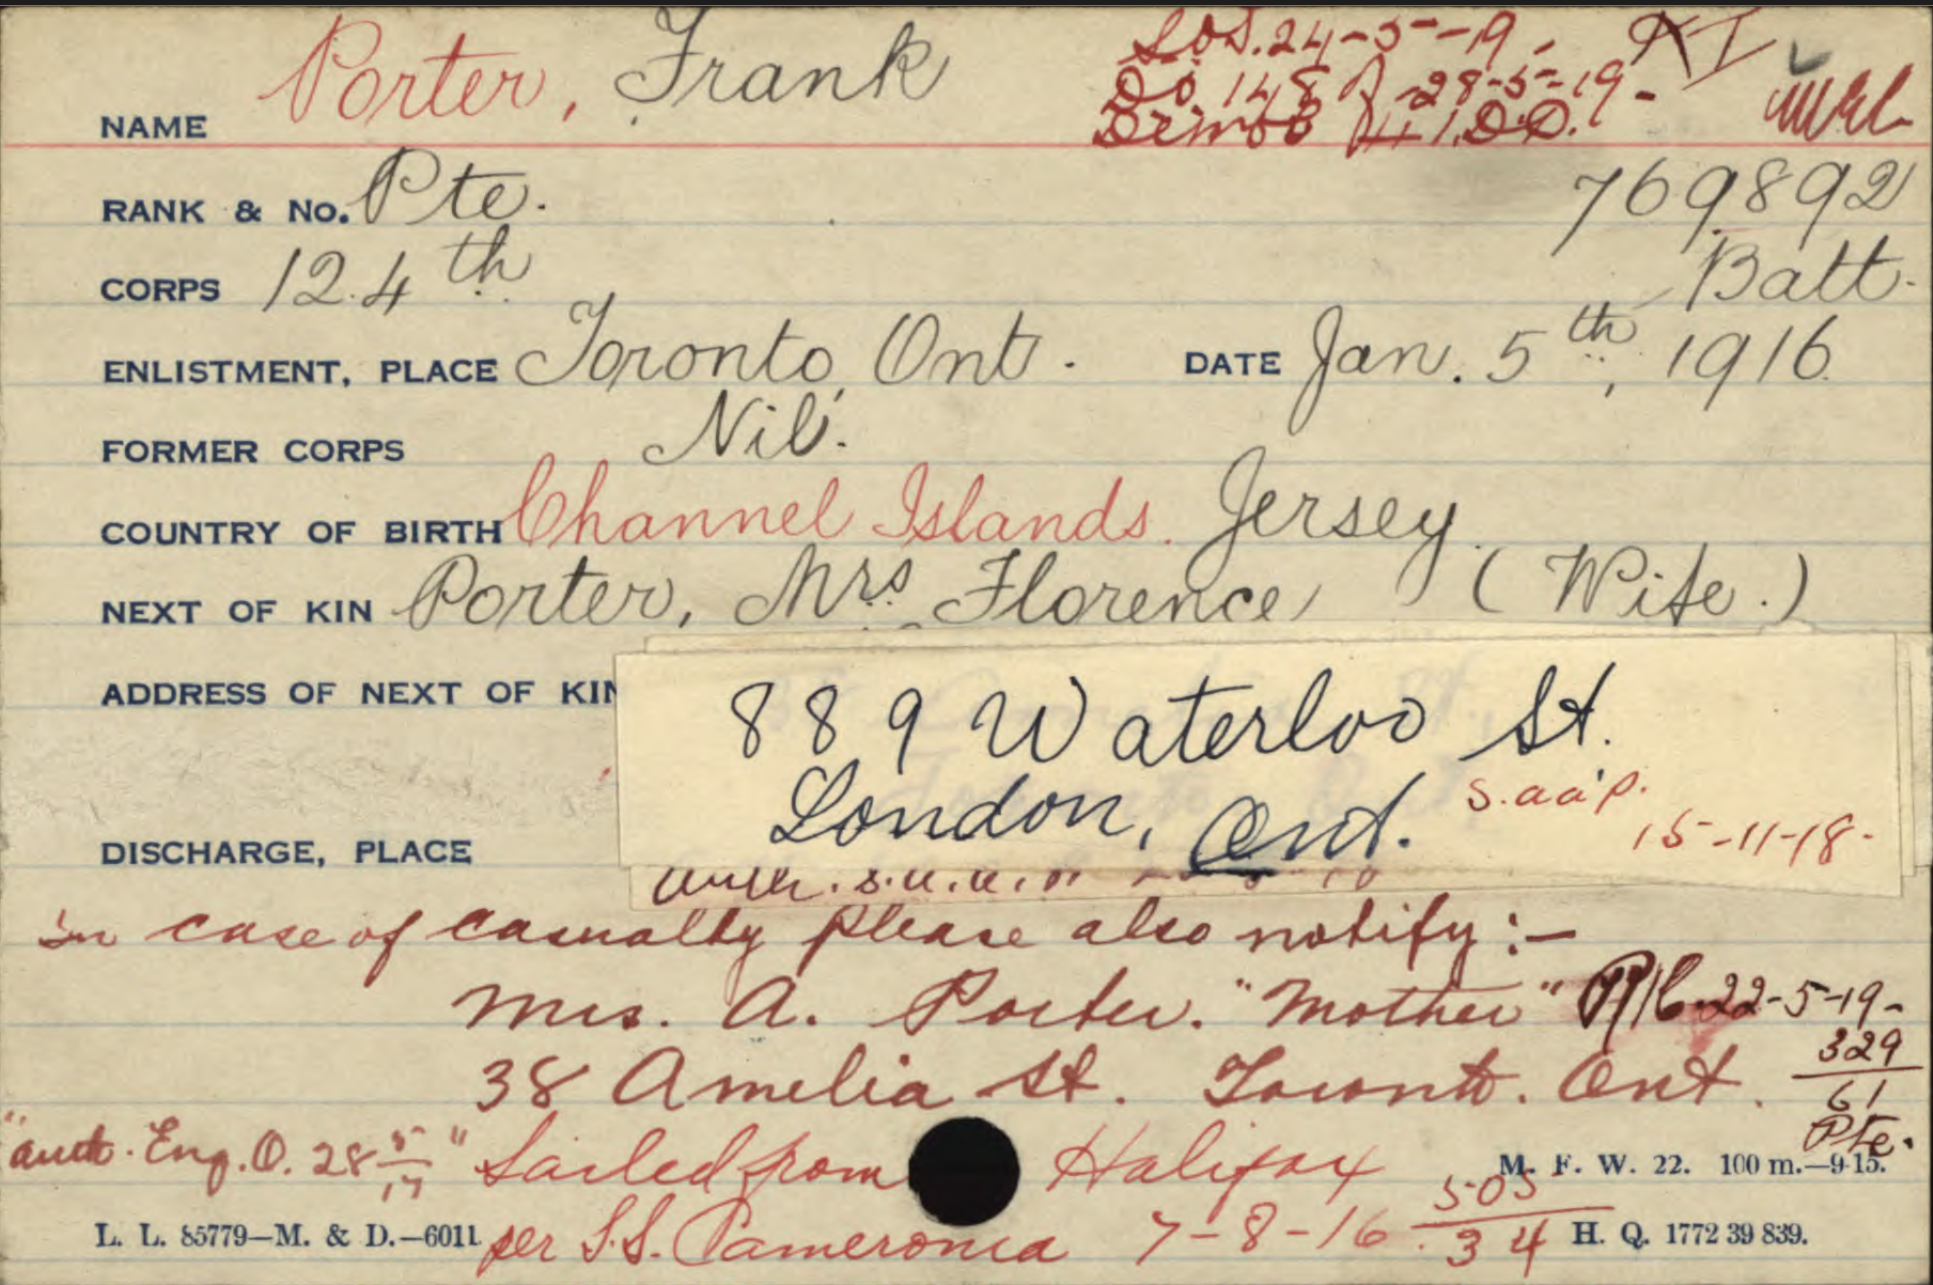 NAME Porter, Frank
S.O.S. 24-5-19.
D.O. 148 28-5-19-
Demob 11 D.D.
RANK & No. Pte. 769892
CORPS 124th Batt.
ENLISTMENT, PLACE Toronto, Ont. DATE Jan. 5th, 1916
FORMER CORPS Nil.
COUNTRY OF BIRTH Channel Islands. Jersey.
NEXT OF KIN Porter, Mrs Florence (Wife.)
ADDRESS OF NEXT OF KIN
889 Waterloo St.
London, Ont. S.a.a.p.
15-11-18-
DISCHARGE, PLACE
Auth. S.a.a.
In case of casualty please also notify:-
Mrs. A. Porter. "Mother" 22-5-19-
38 Amelia St. Toronto. Ont. 329
61
Pte.
"auth. Eng. O. 28 5/17" Sailed from Halifax M. F. W. 22. 100 m.—9-15.
L. L. 85779—M. & D.—6011 per S.S. Cameronia 7-8-16. 505/34 H. Q. 1772 39 839.